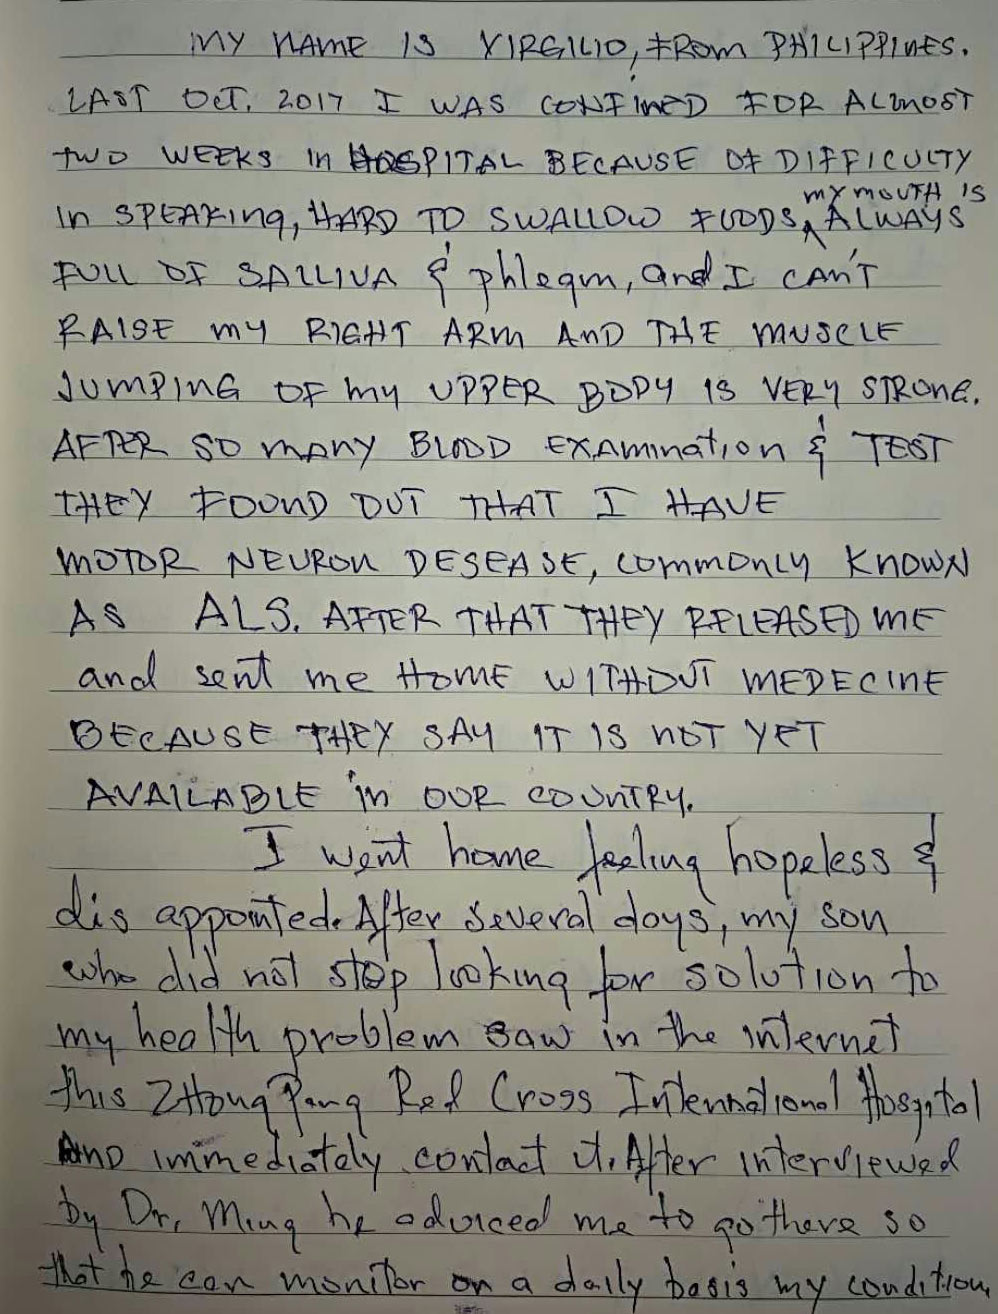 MY NAME IS VIRGILIO, FROM PHILIPPINES.
LAST OCT. 2017 I WAS CONFINED FOR ALMOST
TWO WEEKS IN HOSPITAL BECAUSE OF DIFFICULTY
IN SPEAKING, HARD TO SWALLOW FOODS, MY MOUTH IS ALWAYS
FULL OF SALLIVA & phlegm, and I CAN'T
RAISE MY RIGHT ARM AND THE MUSCLE
JUMPING OF MY UPPER BODY IS VERY STRONG.
AFTER SO MANY BLOOD EXAMINATION & TEST
THEY FOUND OUT THAT I HAVE
MOTOR NEURON DESEASE, COMMONLY KNOWN
AS ALS. AFTER THAT THEY RELEASED ME
and sent me HOME WITHOUT MEDECINE
BECAUSE THEY SAY IT IS NOT YET
AVAILABLE in OUR COUNTRY.
I went home feeling hopeless &
dis appointed. After several days, my son
who did not stop looking for solution to
my health problem saw in the internet
this ZHong Pang Red Cross International Hospital
AND immediately contact it. After interviewed
by Dr. Ming he adviced me to go there so
that he can monitor on a daily basis my condition,